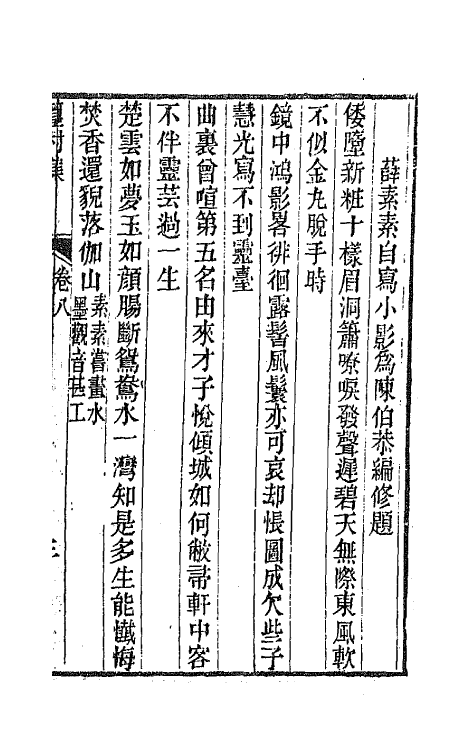 薛素素自寫小影為陳伯恭編修題
倭墮新粧十樣眉洞簫嘹唳發聲遲碧天無際東風軟
不似金丸脫手時
鏡中鴻影畧徘徊露髻風鬟亦可哀却悵圖成欠些子
慧光寫不到靈臺
曲裏曾喧第五名由來才子悅傾城如何敝帚軒中客
不伴靈芸過一生
楚雲如夢玉如顏腸斷鴛鴦水一灣知是多生能懺悔
焚香還貌落伽山素素嘗畫水
墨觀音甚工
卷八
三